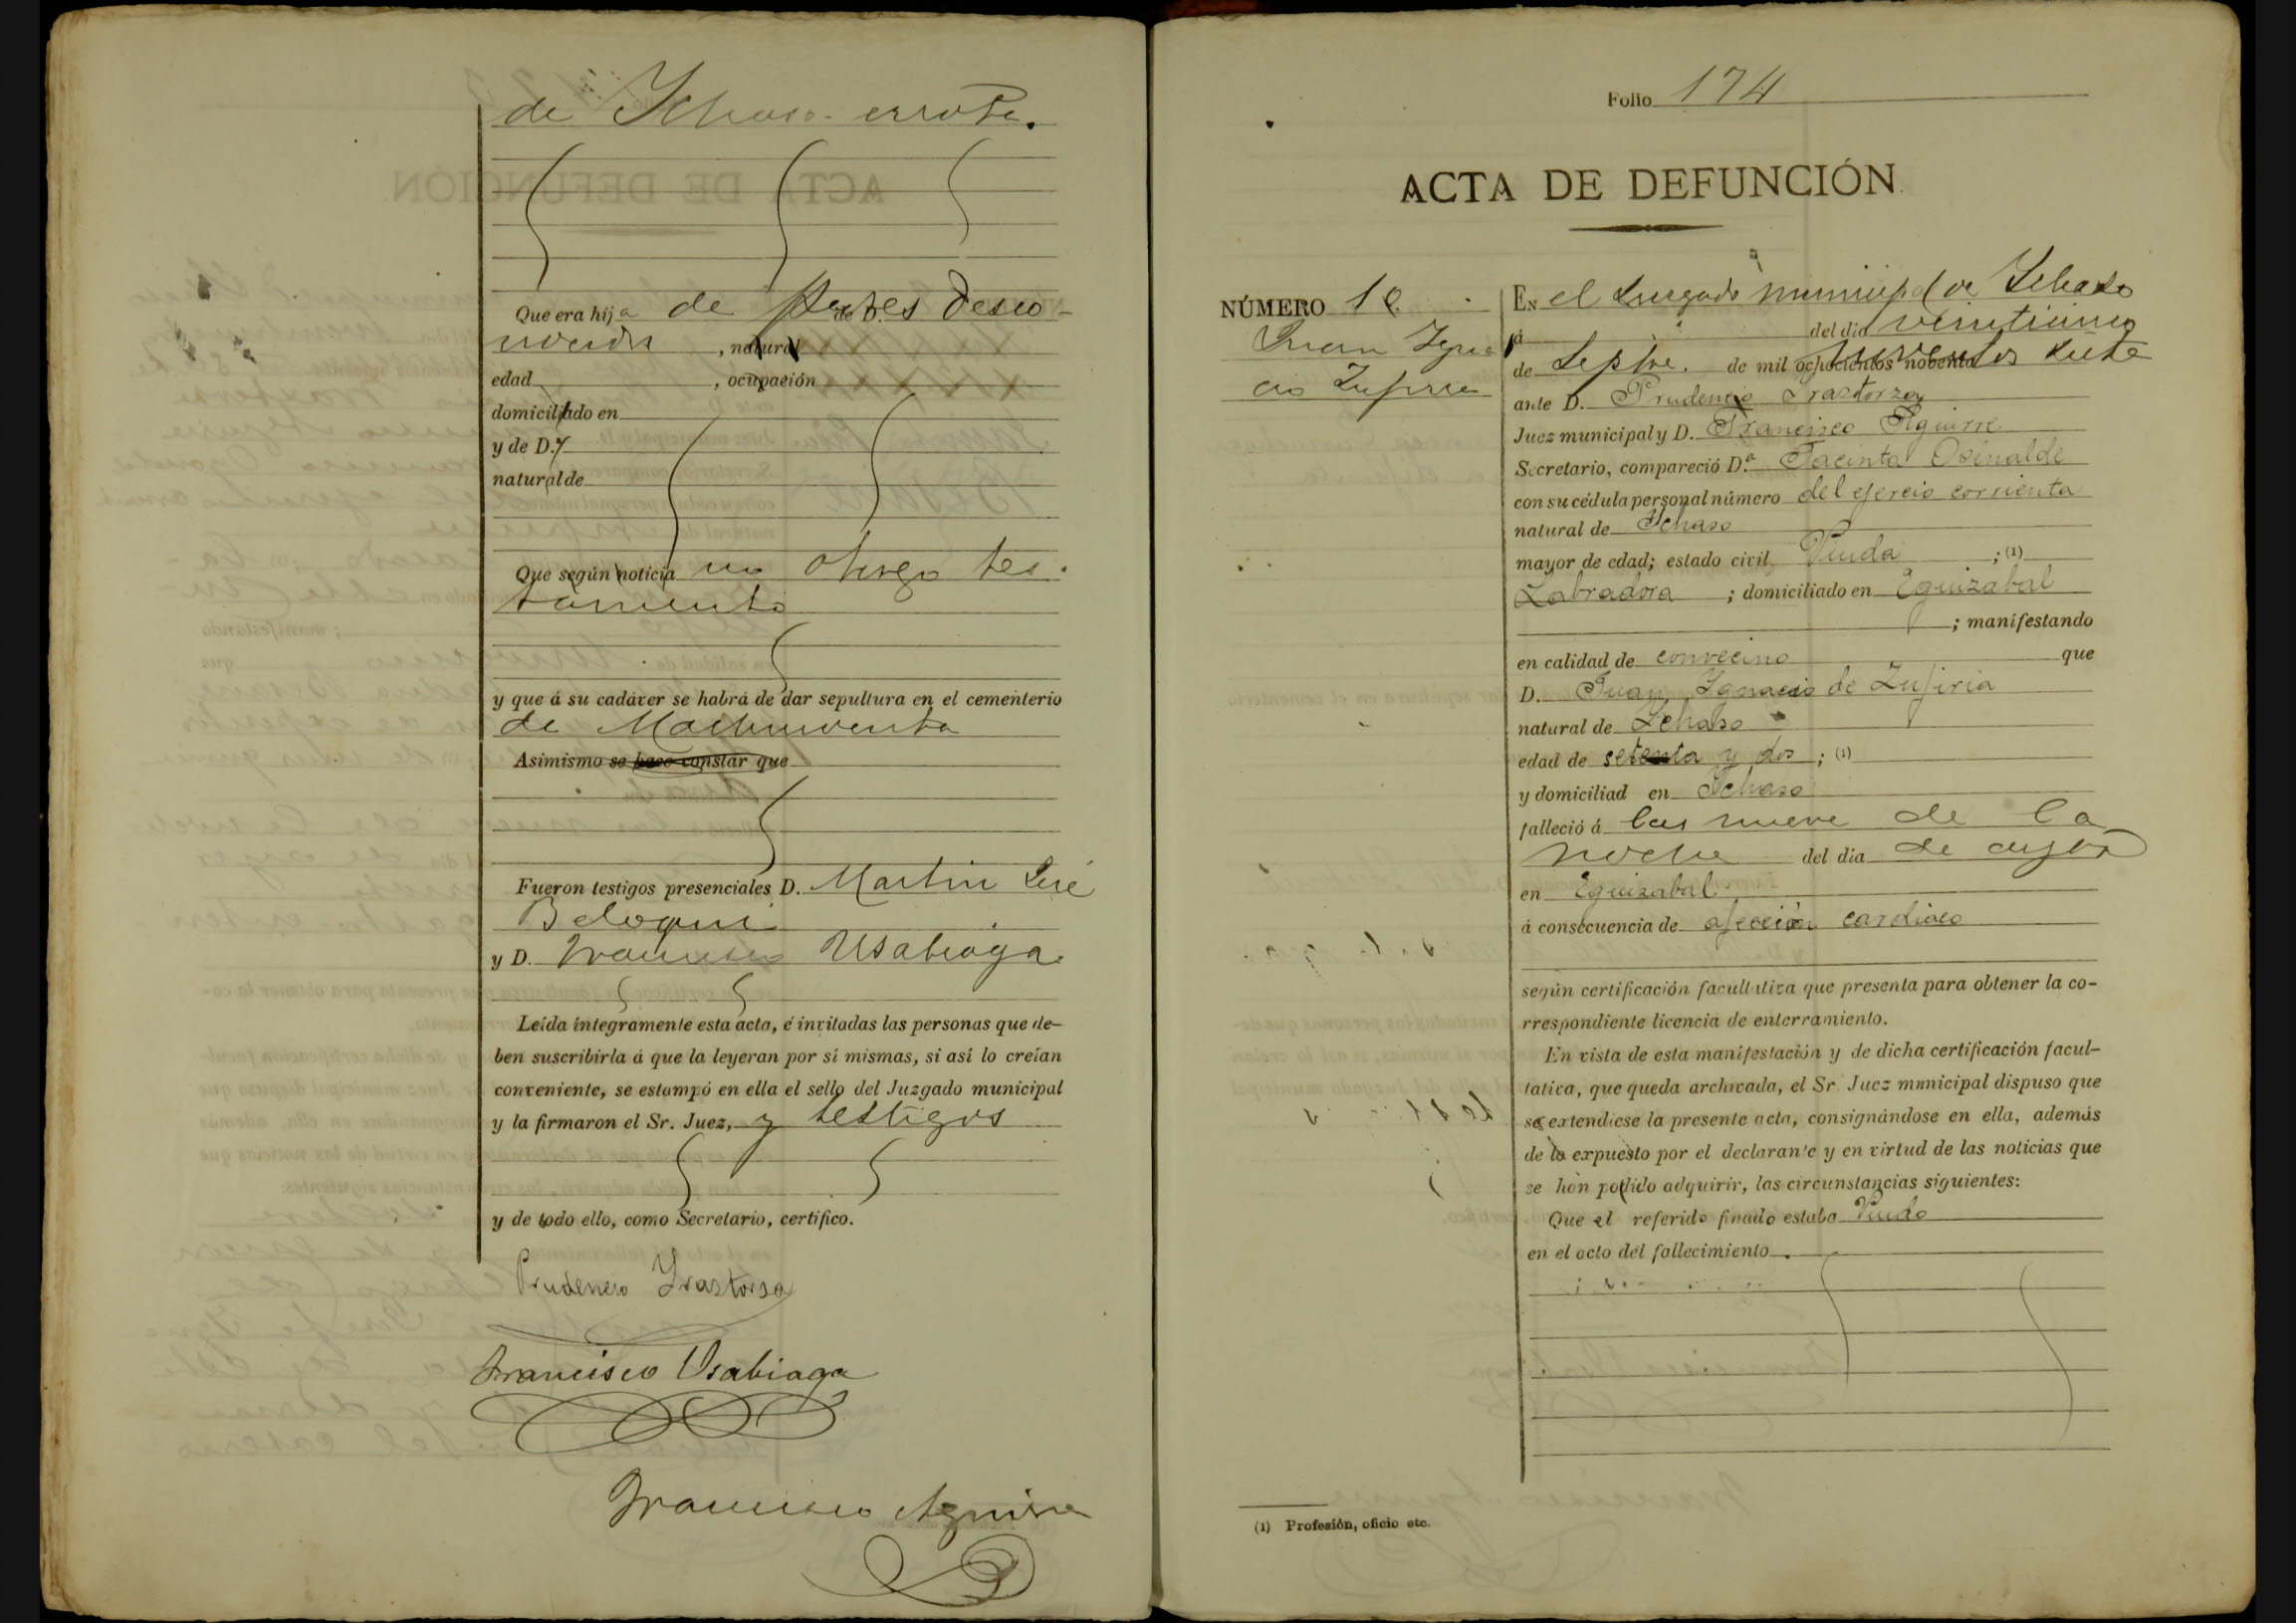 de Ichaso-errota.
Que era hija de Partes desco-
, natural
edad , ocupación
domiciliado en
y de D.ª
natural de
Que según noticia no otorgó tes-
tamento
y que á su cadáver se habrá de dar sepultura en el cementerio
de
Asimismo se hace constar que
Fueron testigos presenciales D. Martin José
Beloqui
y D. Francisco Usabiaga
Leída íntegramente esta acta, é invitadas las personas que de-
ben suscribirla á que la leyeran por sí mismas, si así lo creían
conveniente, se estampó en ella el sello del Juzgado municipal
y la firmaron el Sr. Juez, y testigos
y de todo ello, como Secretario, certifico.
Prudencio Yrastorza
Francisco Usabiaga
Francisco Aguirre
Folio 174
ACTA DE DEFUNCIÓN
NÚMERO
Juan Igna
cio Zufiria
EN el Juzgado municipal de Ichaso
á del dia veinticinco
de Sepbre. de mil ochocientos nobenta novecientos siete
ante D. Prudencio Irastorza
Juez municipal y D. Francisco Aguirre
Secretario, compareció D.ª Jacinta Osinalde
con su cédula personal número del ejercio corrienta
natural de Ichaso
mayor de edad; estado civil Viuda ; (1)
Labradora ; domiciliado en Eguizabal
; manifestando
en calidad de convecino que
D. Juan Ignacio de Zufiria
natural de Ichaso
edad de setenta y dos ; (1)
y domiciliad en Ichaso
falleció á las nueve de la
noche del dia de ayer
en Eguizabal
á consecuencia de afección cardiaco
según certificación facultativa que presenta para obtener la co-
rrespondiente licencia de enterramiento.
En vista de esta manifestación y de dicha certificación facul-
tativa, que queda archivada, el Sr Juez municipal dispuso que
se extendiese la presente acta, consignándose en ella, además
de lo expuesto por el declarante y en virtud de las noticias que
se hàn podido adquirir, las circunstancias siguientes:
Que el referido finado estaba Viudo
en el acto del fallecimiento
(1) Profesión, oficio etc.